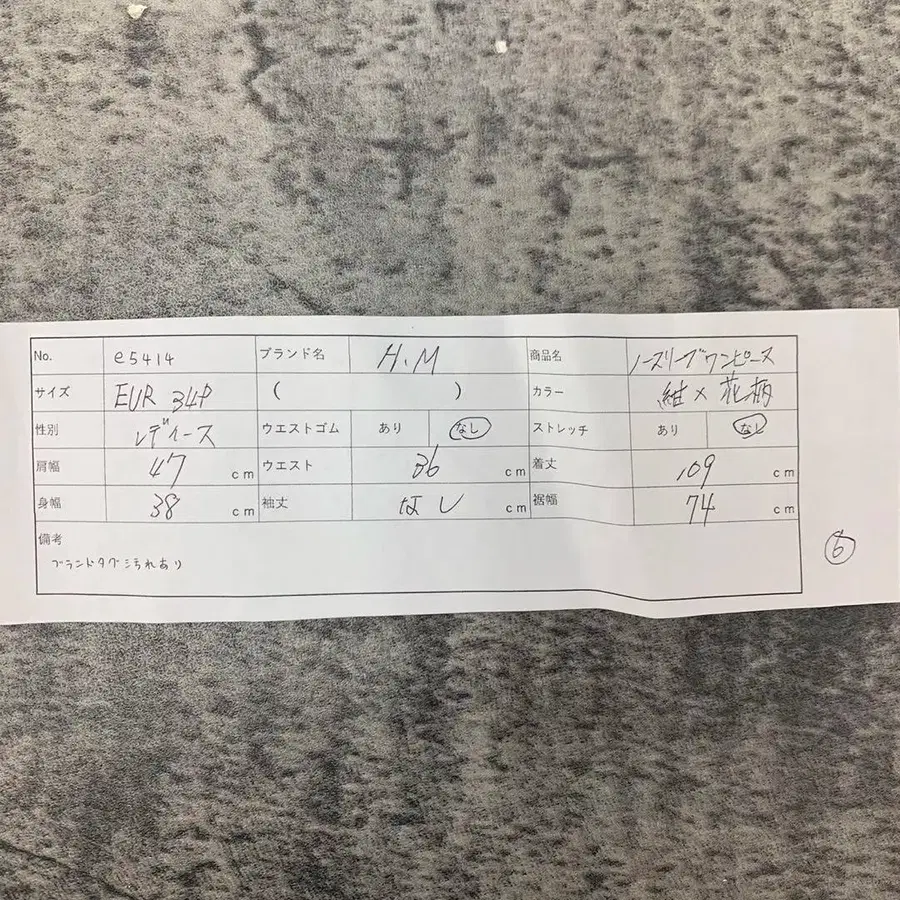 No. e5414 ブランド名 H.M 商品名 ノースリーブワンピース
サイズ EUR 34P ( ) カラー 紺×花柄
性別 レディース ウエストゴム あり なし ストレッチ あり なし
肩幅 47 cm ウエスト 36 cm 着丈 109 cm
身幅 38 cm 袖丈 なし cm 裾幅 74 cm
備考
ブランドタグ汚れあり
6